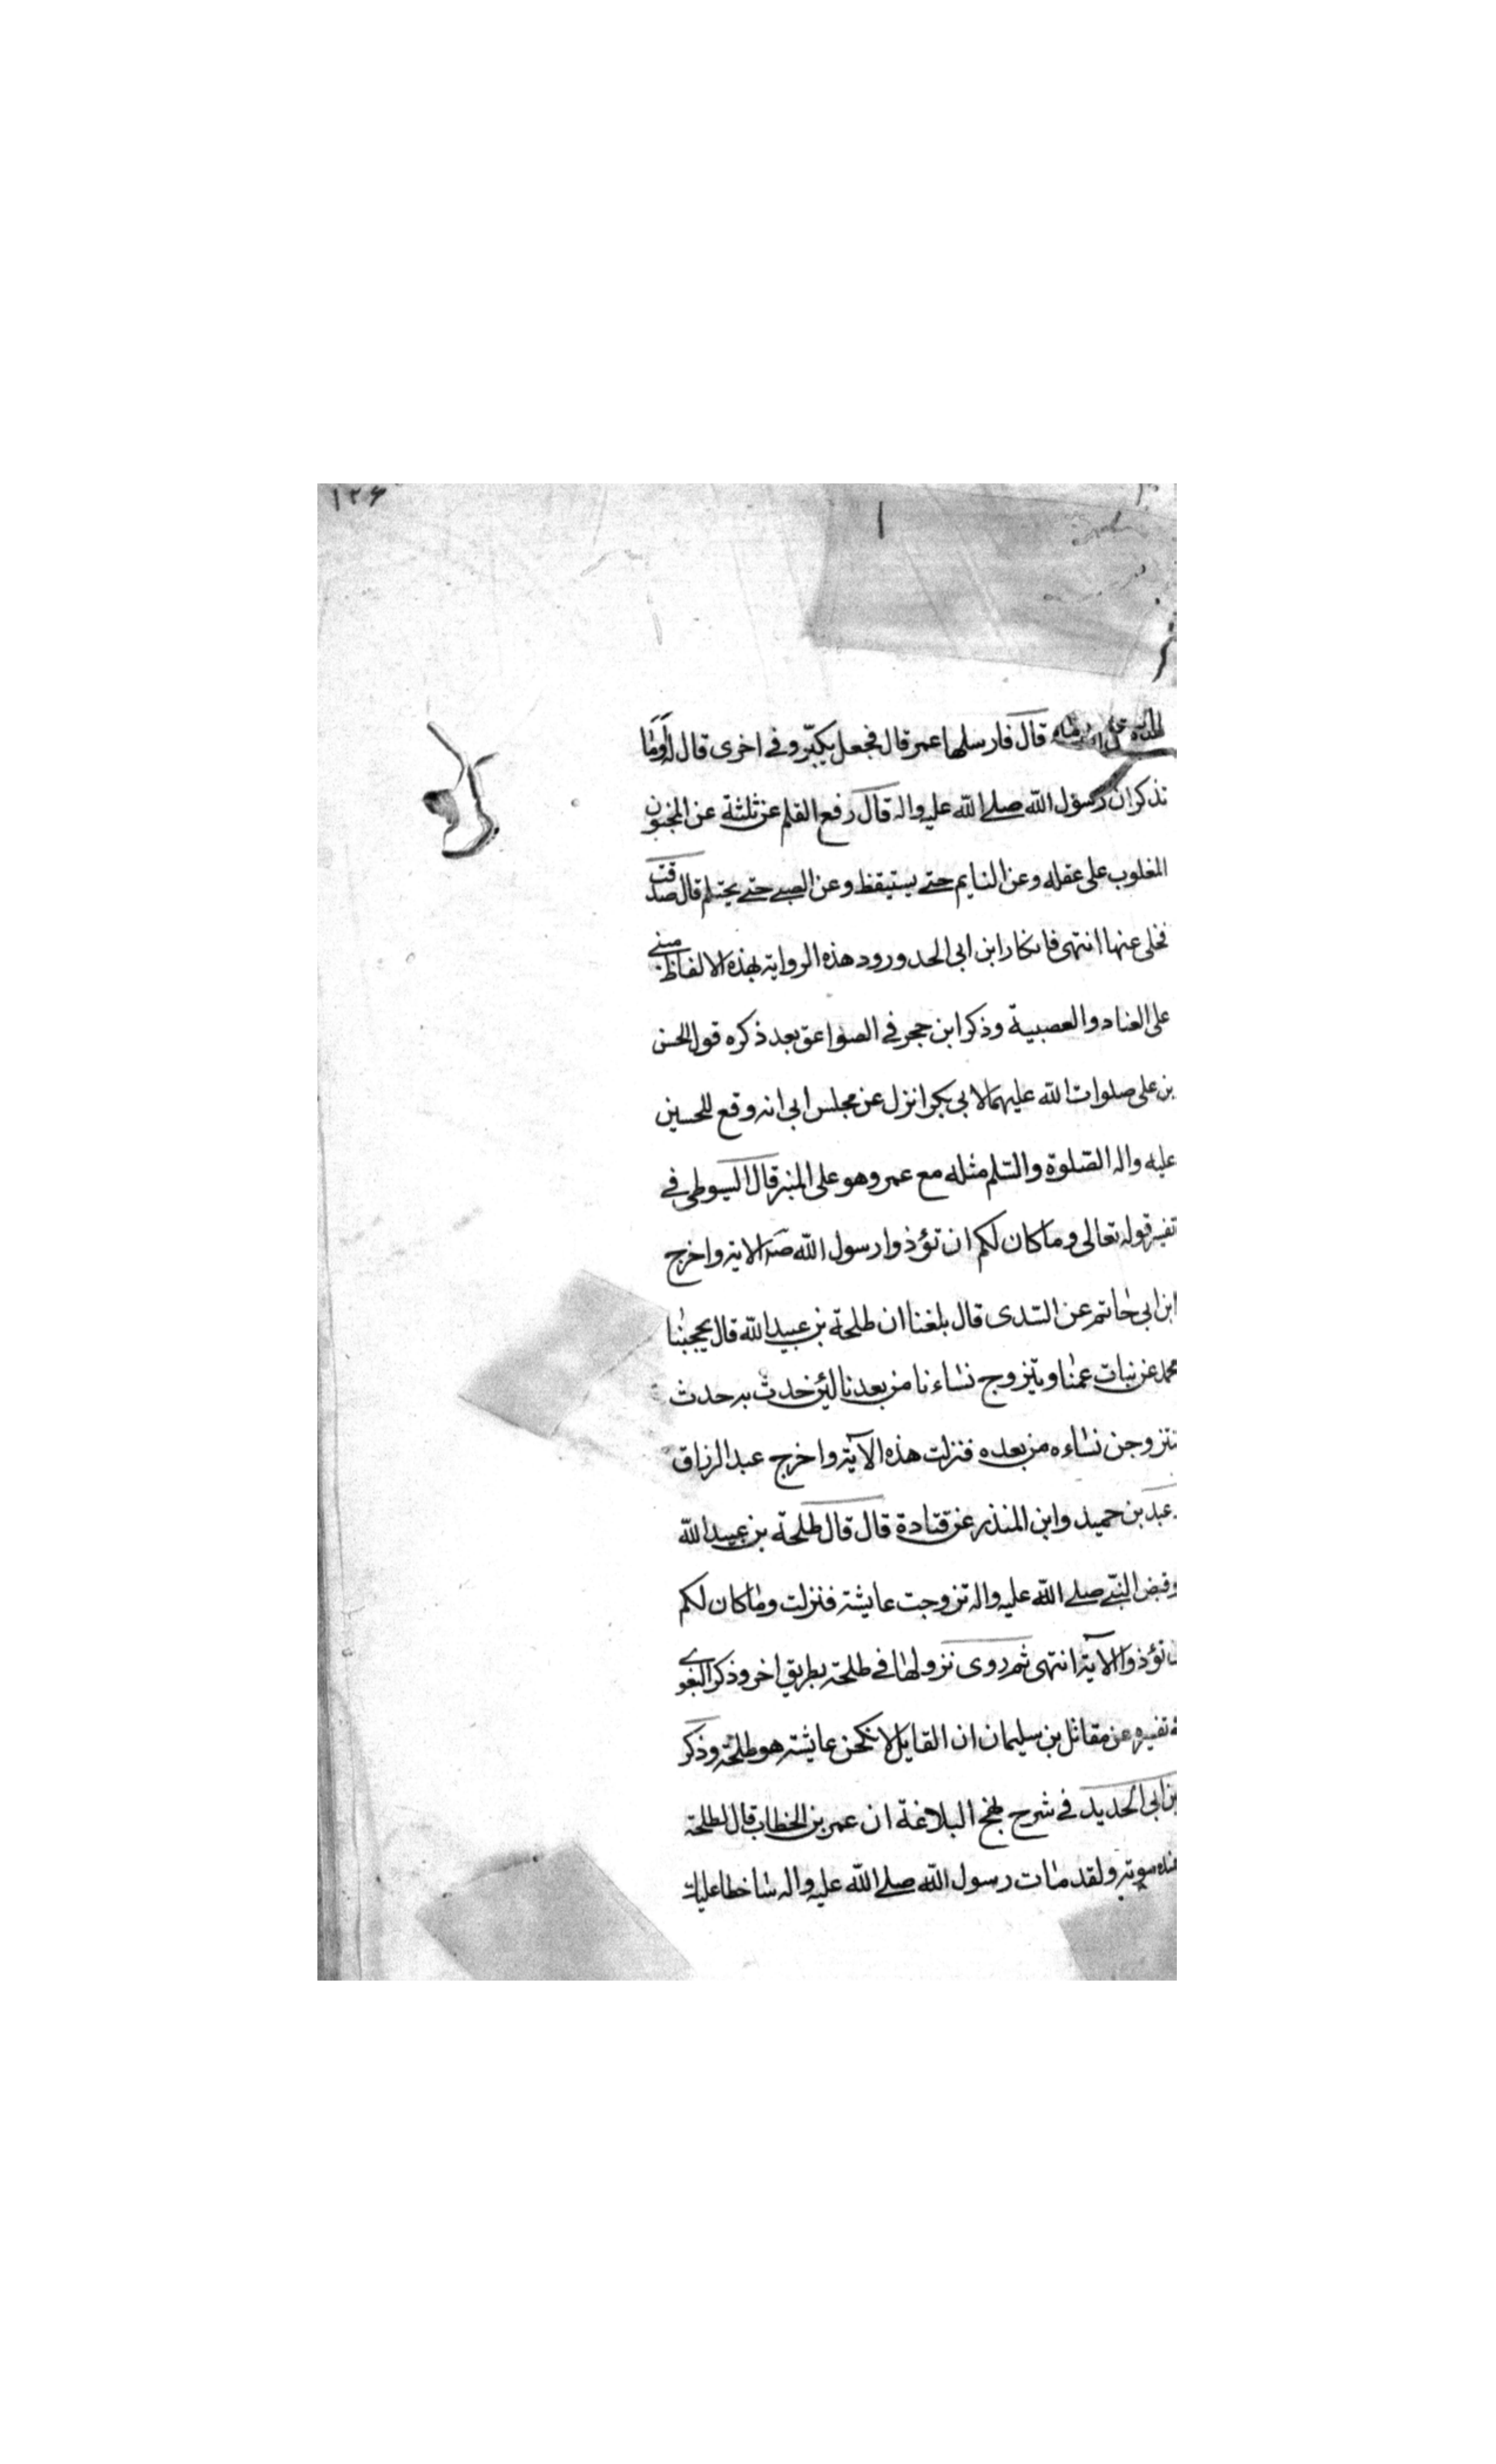 ١٢٦
قال فارسلها عمر قال فجعل يكبّر وفي اخرى قال له اَوَمَا
تذكر ان رسول الله صلى الله عليه واله قال رفع القلم عن ثلثة عن المجنون
المغلوب على عقله وعن النايم حتى يستيقظ وعن الصبي حتى يحتلم قال صدقت
فخلى عنها انتهى فانكار ابن ابى الحد ورود هذه الرواية بهذه الالفاظ مبني
على العناد والعصبية وذكر ابن حجر في الصواعق بعد ذكره قول الحسن
بن على صلوات الله عليهما لابي بكر انزل عن مجلس ابى انه وقع للحسين
عليه واله الصّلوة والسّلم مثله مع عمر وهو على المنبر قال السيوطى في
تفسير قوله تعالى وما كان لكم ان تؤذوا رسول الله صه الاية واخرج
ابن ابى حاتم عن السّدى قال بلغنا ان طلحة بن عبيد الله قال يحجبنا
محمد عن بنات عمنا ويتزوج نساءنا من بعدنا لئن حدث به حدث
نتزوجن نساءه من بعده فنزلت هذه الآية واخرج عبد الرزاق
عبد بن حميد وابن المنذر عن قتادة قال قال طلحة بن عبيد الله
وقبض النبّي صلى الله عليه واله تزوجت عايشة فنزلت وما كان لكم
ن تؤذوا الآية انتهى ثم روى نزولها في طلحة بطريق اخر وذكر البغوى
تفسيره عن مقاتل بن سليمان ان القايل لانكحن عايشة هو طلحة وذكر
بن ابى الحديد في شرح نهج البلاغة ان عمر بن الخطاب قال لطلحة
ولقد مات رسول الله صلى الله عليه واله ساخطا عليك